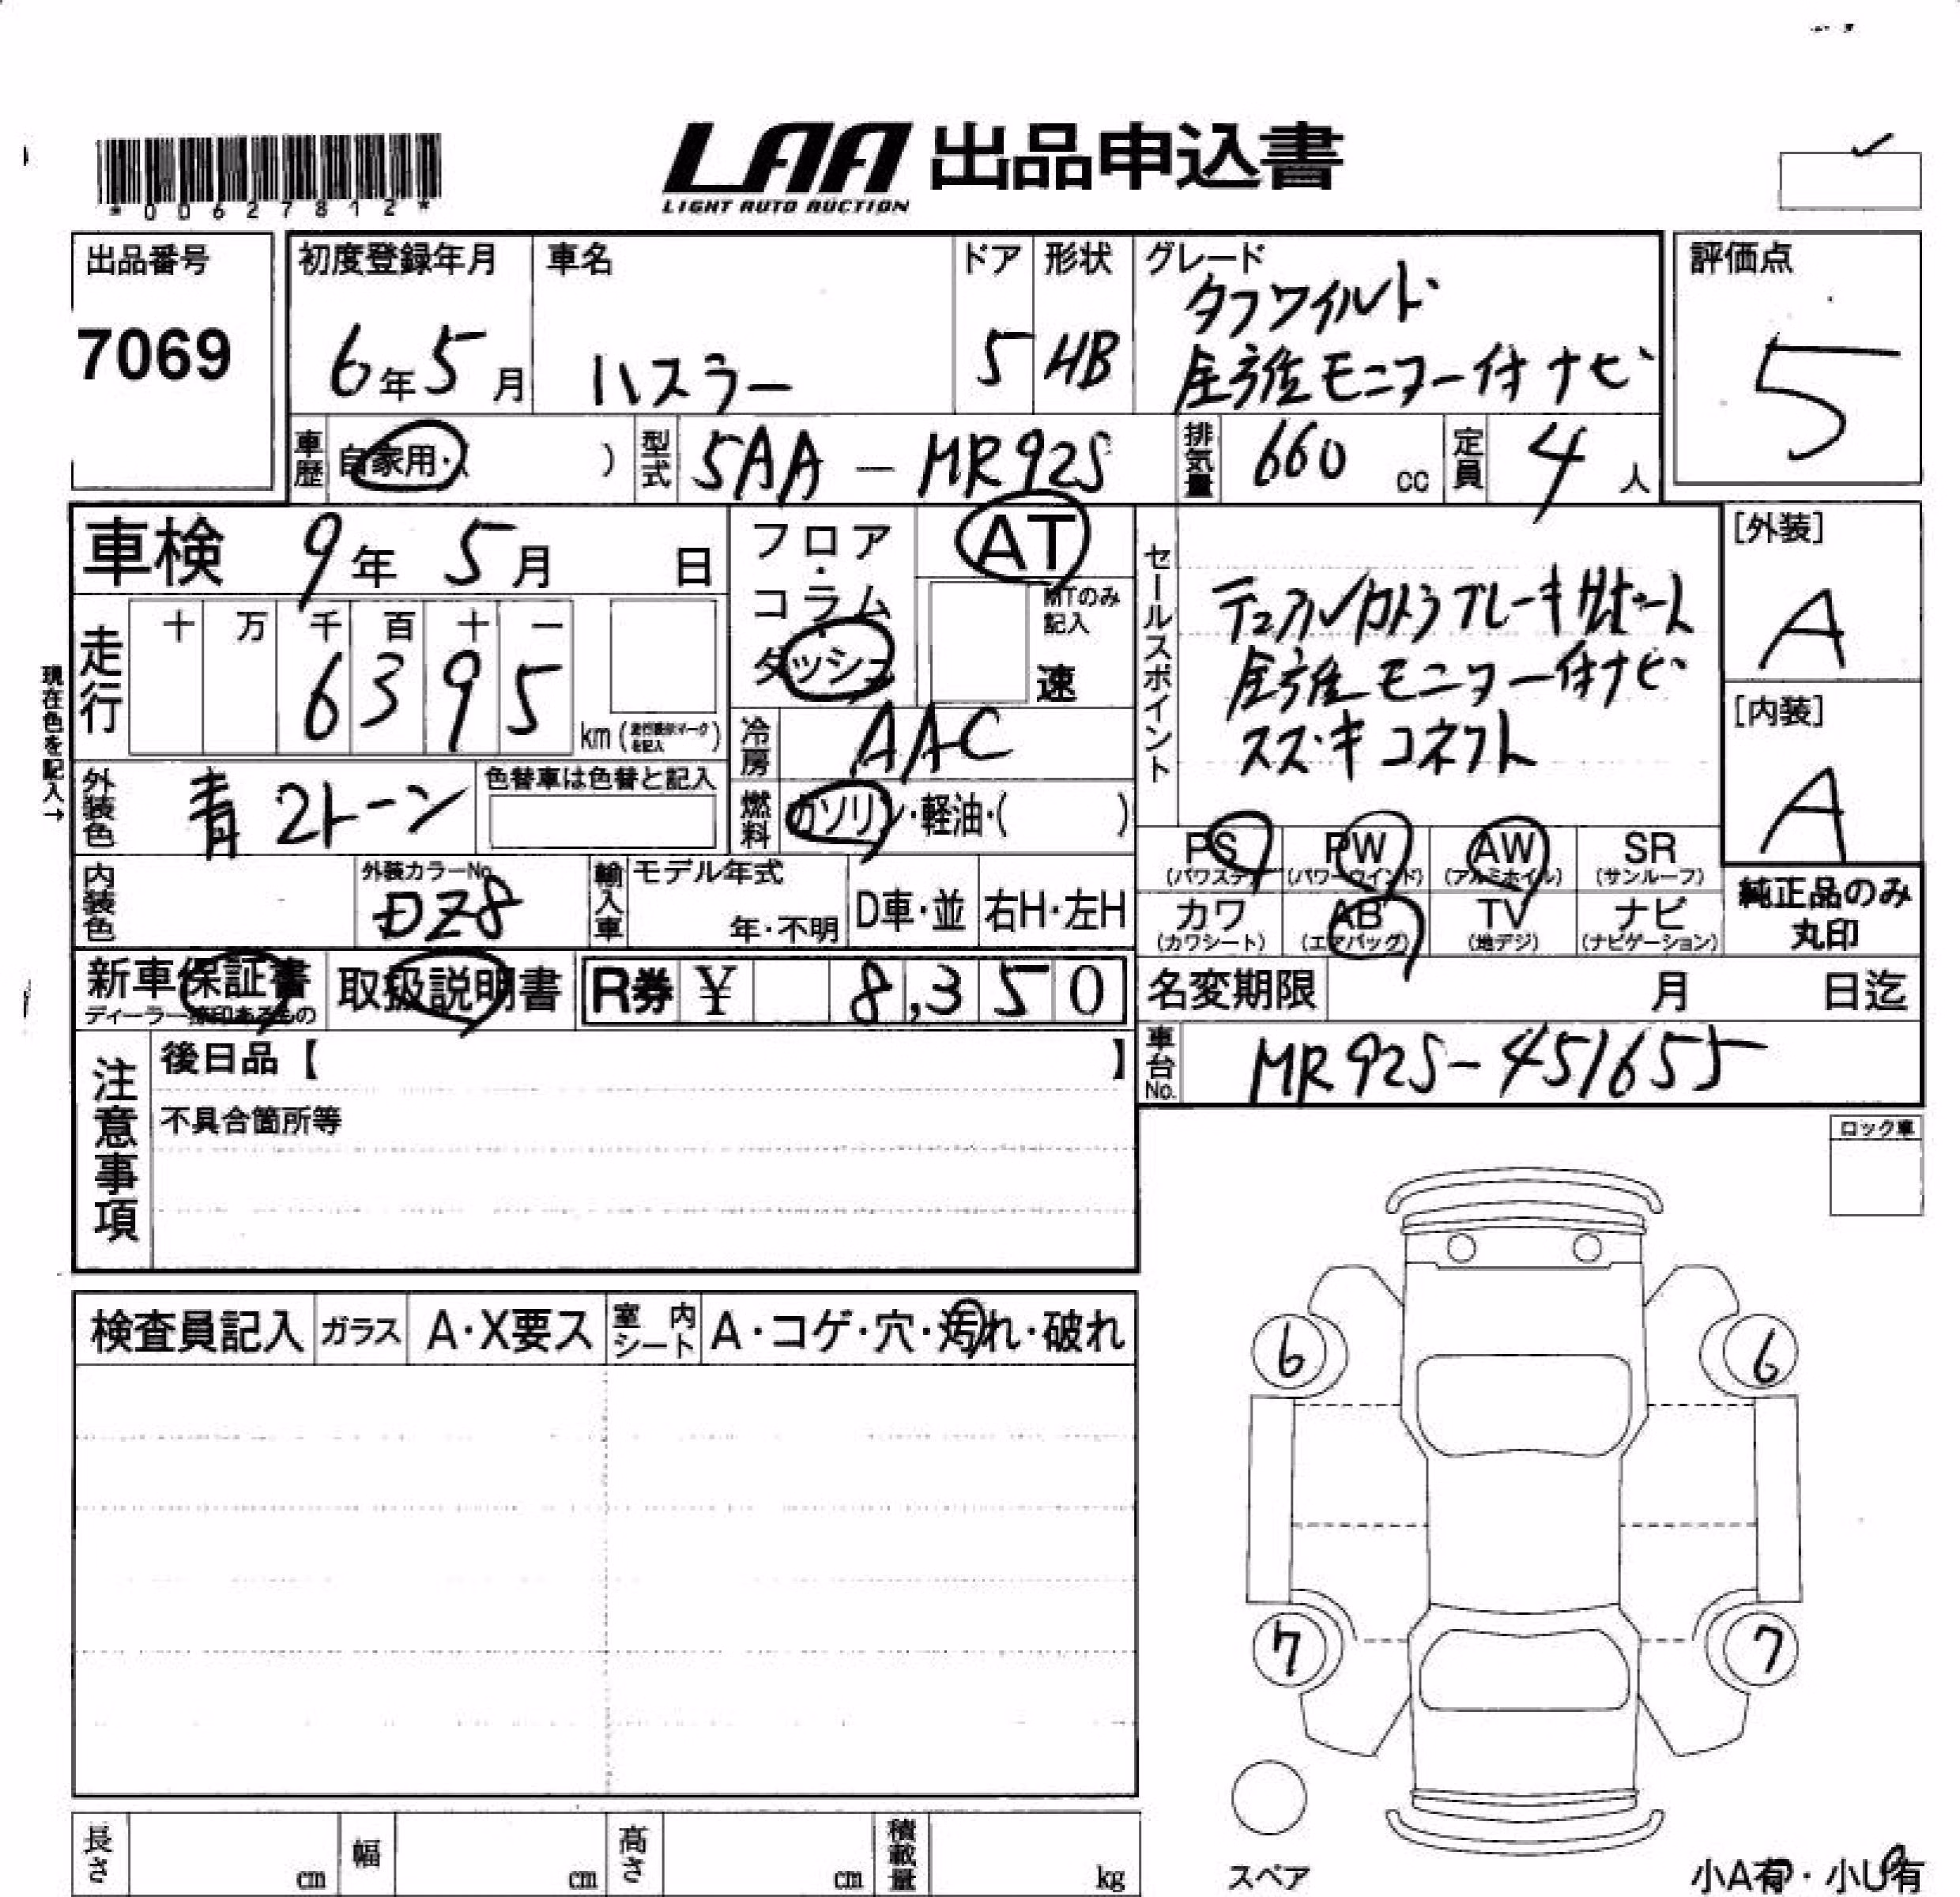 LAA 出品申込書
LIGHT AUTO AUCTION
*00627812*
出品番号
7069
初度登録年月
6年5月
車名
ハスラー
ドア
5
形状
HB
グレード
タフワイルド
全方位モニター付ナビ
評価点
5
車歴
自家用・( )
型式
5AA-MR92S
排気量
660 cc
定員
4 人
車検 9年 5月 日
フロア・コラム・ダッシュ
AT
MTのみ記入
速
走行
十 万 千 百 十 一
6 3 9 5
km
現在色を記入→
冷房
AAC
外装色
青2トーン
色替車は色替と記入
燃料
ガソリン・軽油・( )
セールスポイント
デュアルカメラブレーキサポート
全方位モニター付ナビ
スズキコネクト
[外装]
A
[内装]
A
PS
(パワステ)
PW
(パワーウインド)
AW
(アルミホイル)
SR
(サンルーフ)
カワ
(カワシート)
AB
(エアバッグ)
TV
(地デジ)
ナビ
(ナビゲーション)
純正品のみ
丸印
内装色
外装カラーNo.
DZ8
輸入車
モデル年式
年・不明
D車・並
右H・左H
新車保証書
ディーラー捺印あるもの
取扱説明書
R券 ¥ 8,350
名変期限 月 日迄
車台No.
MR92S-451655
注意事項
後日品【 】
不具合箇所等
ロック車
検査員記入
ガラス
A・X要ス
室内シート
A・コゲ・穴・汚れ・破れ
6 6
7 7
スペア
長さ cm
幅 cm
高さ cm
積載量 kg
小A有・小U有